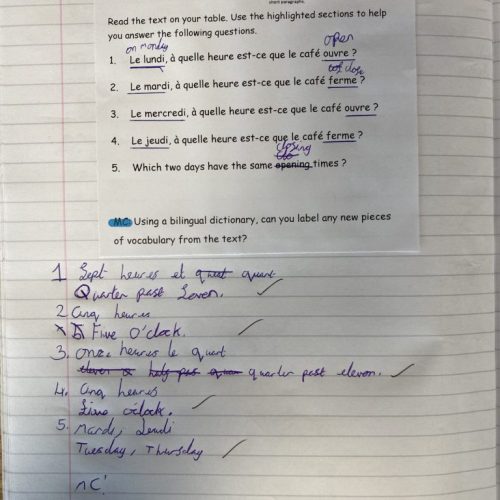 short paragraphs.
Read the text on your table. Use the highlighted sections to help
you answer the following questions.
on monday open
1. Le lundi, à quelle heure est-ce que le café ouvre ?
close
2. Le mardi, à quelle heure est-ce que le café ferme ?
3. Le mercredi, à quelle heure est-ce que le café ouvre ?
4. Le jeudi, à quelle heure est-ce que le café ferme ?
closing
5. Which two days have the same opening times ?
MC: Using a bilingual dictionary, can you label any new pieces
of vocabulary from the text?
1 Sept heures et quart
Quarter past Seven.
2 Cinq heures
Five O'clock.
3. onze heures le quart
eleven half past quarter past eleven.
4. Cinq heures
five o'clock.
5. Mardi, Jeudi
Tuesday, Thursday
MC: